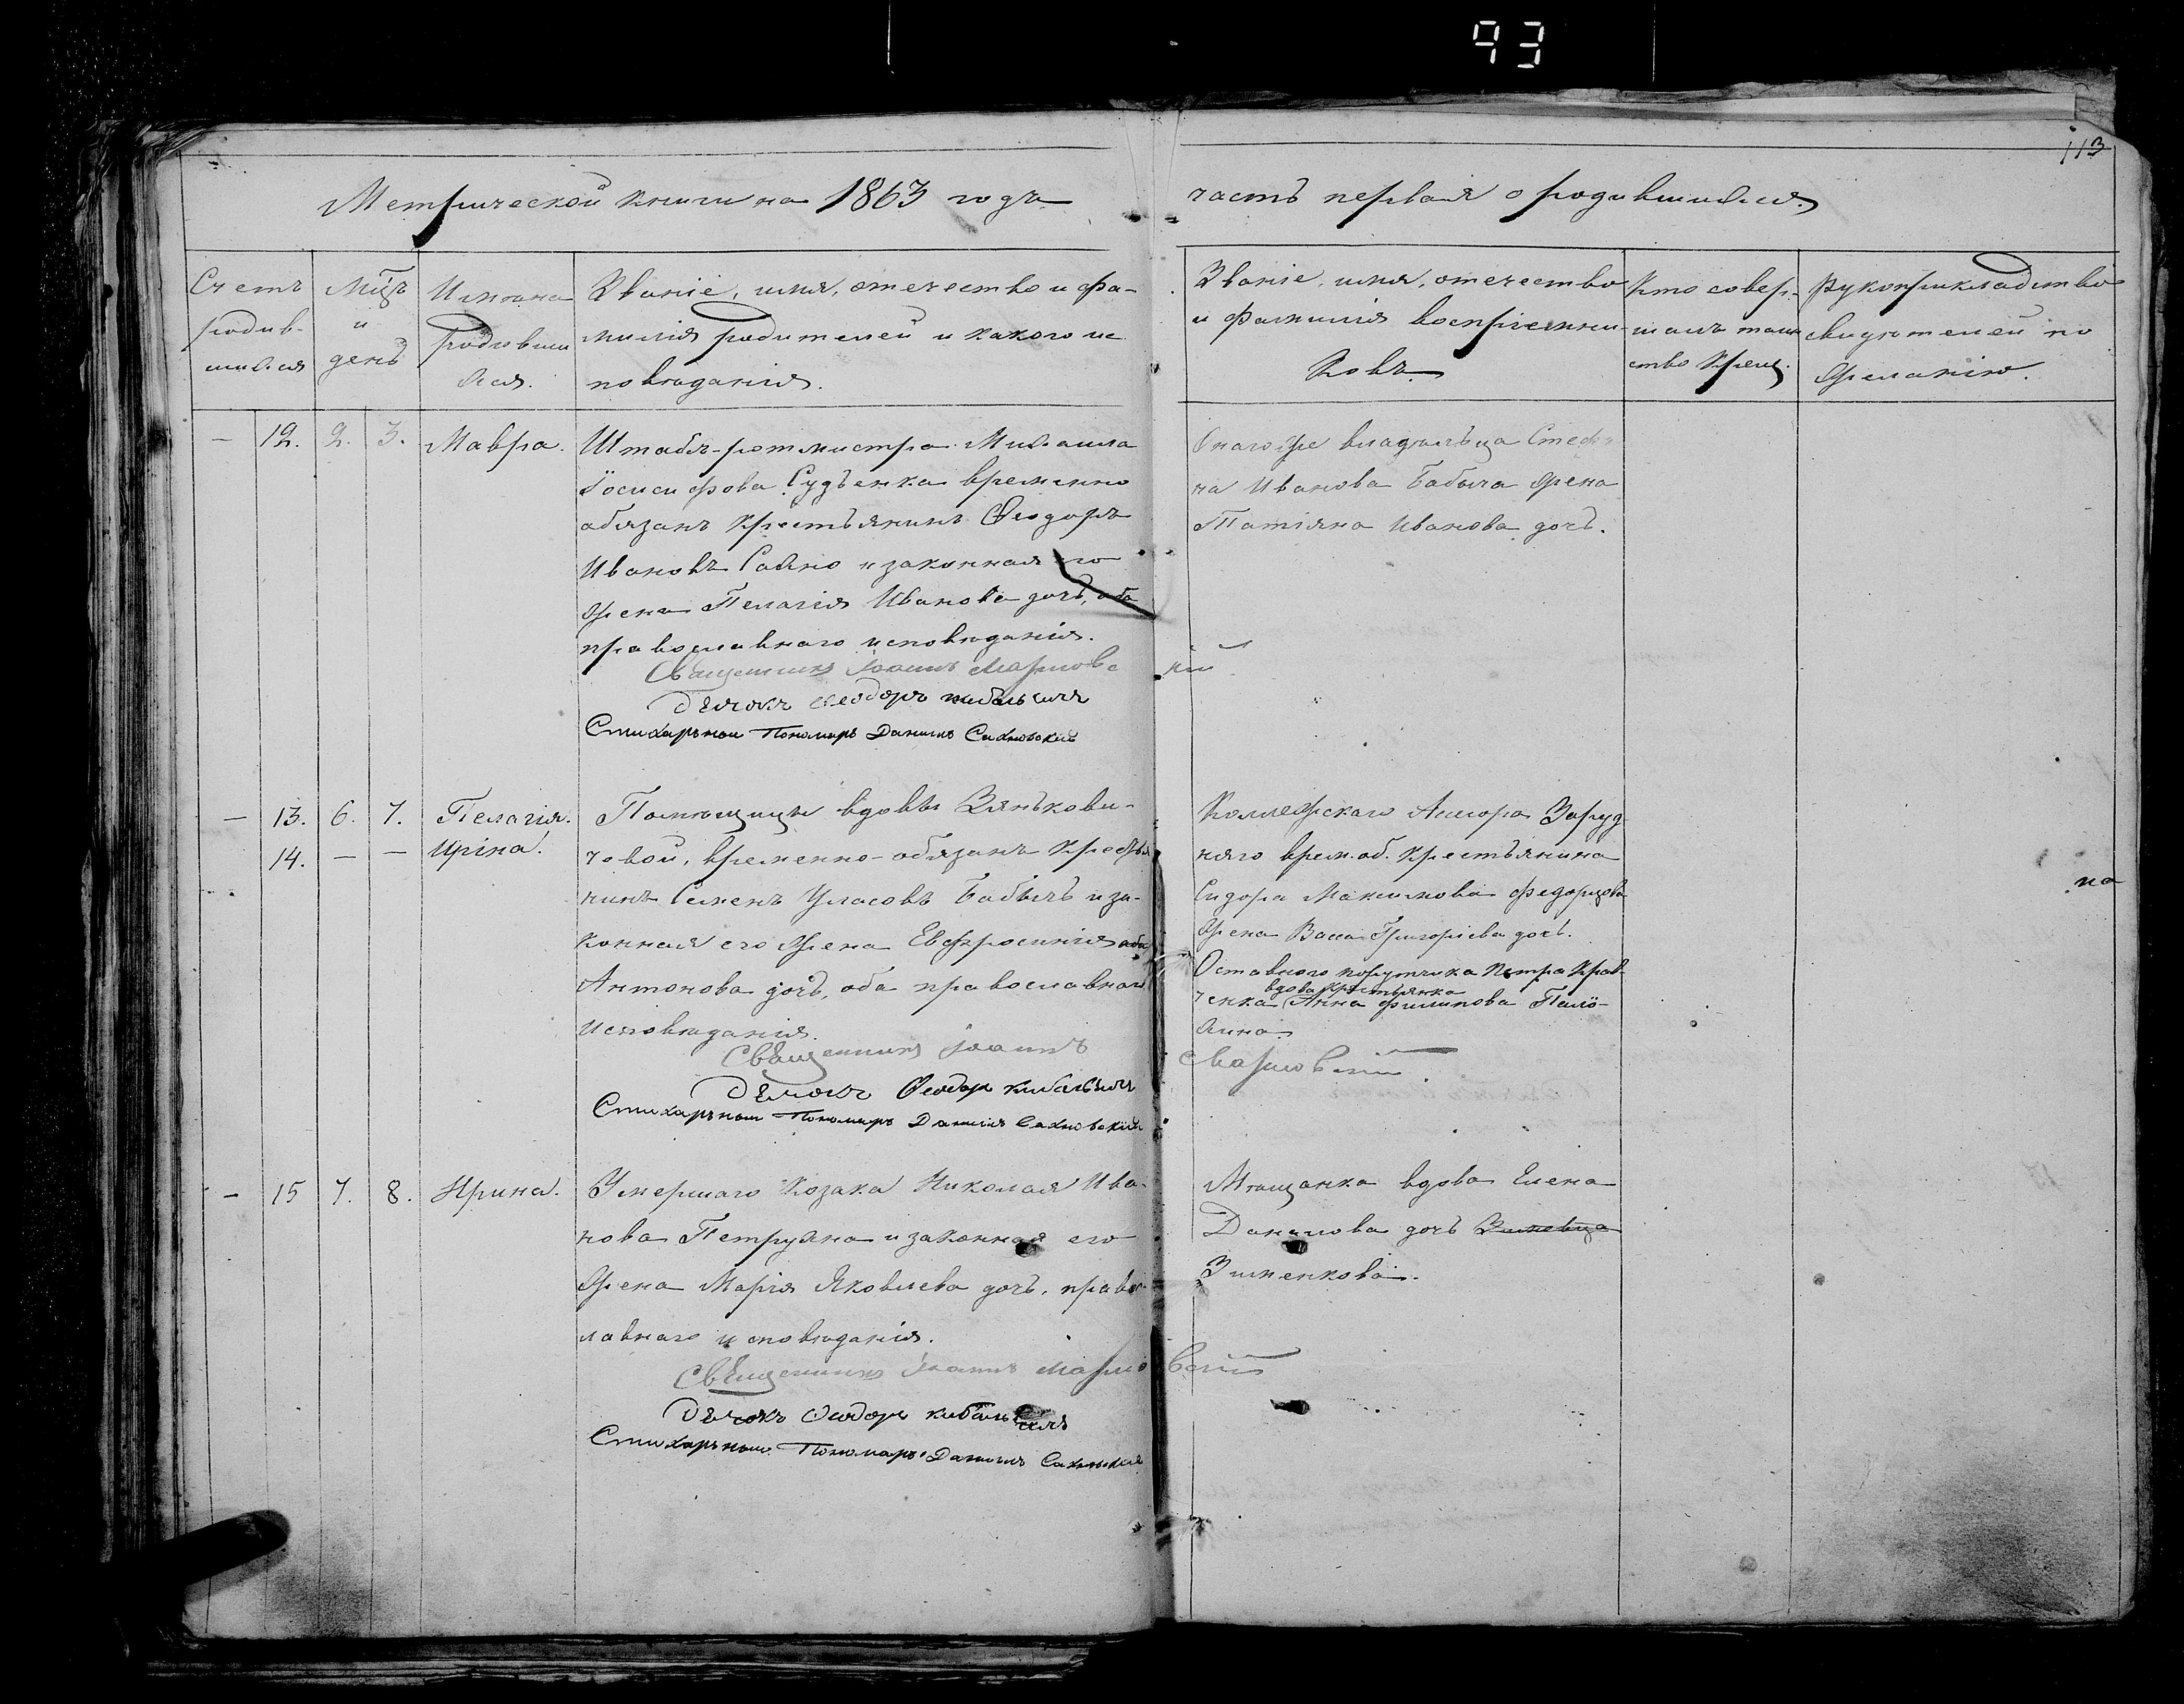 93
113
Метрической книги на 1863 годъ
часть первая о родившихся.
Счетъ родив- шихся
Мцъ и день
Имяна родивши хся.
Званіе, имя, отечество и фа-
милія родителей и какого ис
повѣданія.
Званіе, имя, отечество
и фамилія воспріемни-
ковъ
Кто совер- шалъ таин ство крещ.
Рукоприкладство
свидѣтелей по
желанію.
— 12. 2. 3. Мавра.
Штабъ-ротмистра Михаила
Іосифова Судѣенка временно
обязанъ крестьянинъ Ѳеодоръ
Ивановъ Сахно и законная его
жена Пелагія Иванова дочь, оба
православнаго исповѣданія.
Священникъ Іоаннъ
Дьячокъ Ѳеодоръ Кибальчичъ
Стихарный Пономарь Даніилъ Сахновскій
Онагоже владѣльца Стефа
на Иванова Бабыча жена
Татіяна Иванова дочь.
— 13. 6. 7. Пелагія.
14. — — Иріна.
Помѣщицы вдовы Зянькови-
човой, временно-обязанъ кресть
нинъ Семенъ Уласовъ Бабычъ и за-
конная его жена Евфросинія оба
Антонова дочь, оба православнаго
исповѣданія.
Священникъ Іоаннъ
Дьячокъ Ѳеодоръ Кибальчичъ
Стихарный Пономарь Даніилъ Сахновскій
Коллежскаго Асесора Заруд
няго врем. об. крестьянина
Сидора Максимова Федорцова
жена Васса Григоріева дочь.
Оставного порутчика Петра Крав-
вдова крестьянка
ченка Анна Филипова Пало-
хина
на
— 15 7. 8. Ирина.
Умершаго Козака Николая Ива-
нова Петрухна и законная его
жена Марія Яковлева дочь, правос-
лавнаго исповѣданія.
Священникъ Іоаннъ
Дьячокъ Ѳеодоръ Кибальчичъ
Стихарный Пономарь Даніилъ Сахновскій
Мѣщанка вдова Елена
Данилова дочь
Зименкова.